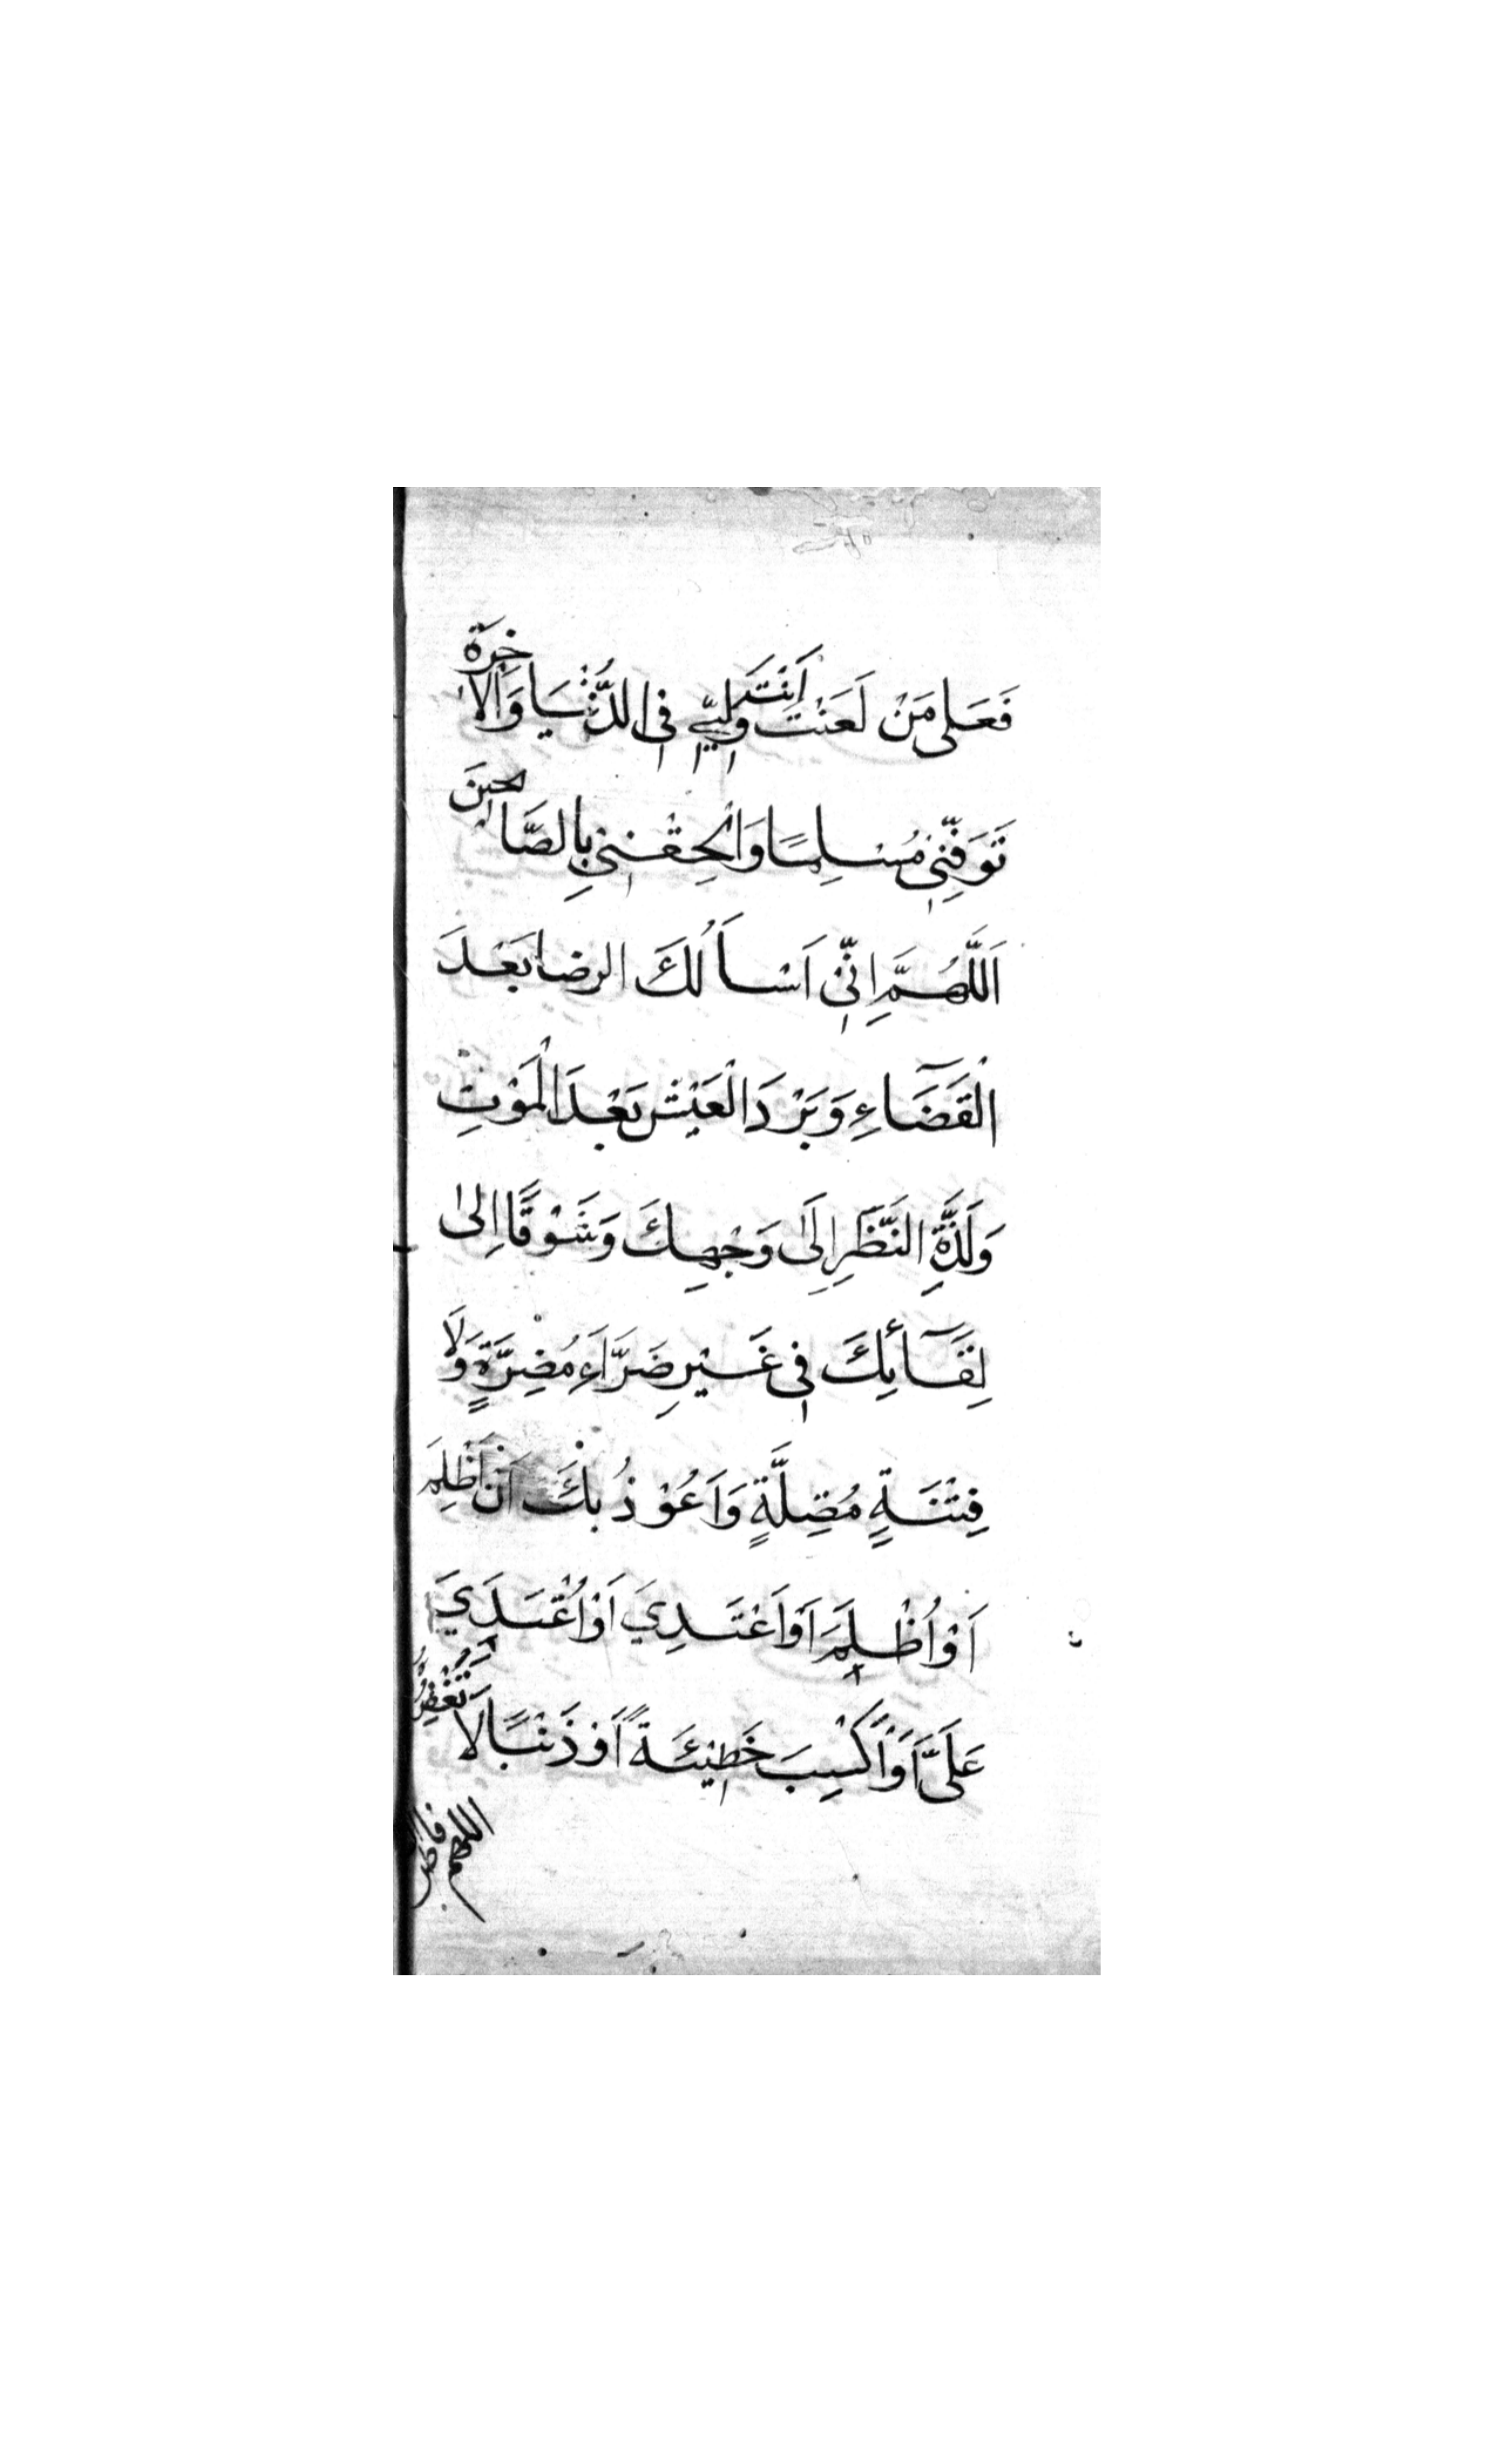 فَعَلى مَنْ لَعَنْتَ اَنْتَ وَلِيّي فِى الدُّنْيَا وَالْاٰخِرَةِ
تَوَفَّنِيْ مُسْلِمًا وَاَلْحِقْنِيْ بِالصَّالِحِينَ
اَللّٰهُمَّ اِنِّيْ اَسْاَلُكَ الرضا بَعْدَ
الْقَضَآءِ وَبَرْدَ الْعَيْشِ بَعْدَ الْمَوْتِ
وَلَذَّةَ النَّظَرِ اِلَى وَجْهِكَ وَشَوْقًا اِلىٰ
لِقَآئِكَ فِي غَيْرِ ضَرَّاءَ مُضِرَّةٍ وَلَا
فِتْنَةٍ مُضِلَّةٍ وَاَعُوْذُ بِكَ اَنْ اَظْلِمَ
اَوْ اُظْلَمَ اَوْ اَعْتَدِيَ اَوْ يُعْتَدَيَ
عَلَيَّ اَوْ اَكْسِبَ خَطِيْئَةً اَوْ ذَنْبًا لَا تَغْفِرُهُ
اللهم فاطر